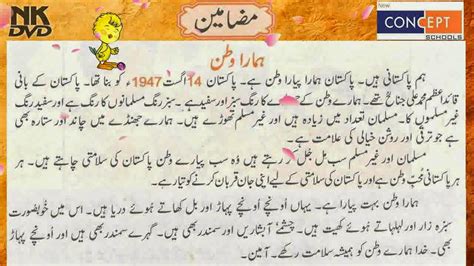 NK
DVD
مضامین
New
CONCEPT
SCHOOLS
ہمارا وطن
ہم پاکستانی ہیں۔ پاکستان ہمارا پیارا وطن ہے۔ پاکستان 14 اگست 1947ء کو بنا تھا۔ پاکستان کے بانی
قائد اعظم محمد علی جناحؒ تھے۔ ہمارے وطن کے کا رنگ سبز اور سفید ہے۔ سبز رنگ مسلمانوں کا رنگ ہے اور سفید رنگ
غیر مسلموں کا۔ مسلمان تعداد میں زیادہ ہیں اور غیر مسلم تھوڑے ہیں۔ ہمارے جھنڈے میں چاند اور ستارہ بھی
ہے جو ترقی اور روشن خیالی کی علامت ہے۔
مسلمان اور غیر مسلم سب مل جل کر رہتے ہیں وہ سب پیارے وطن پاکستان کی سلامتی چاہتے ہیں۔ ہر
پاکستانی محبِّ وطن ہے اور پاکستان کی سلامتی کے لیے اپنی جان قربان کرنے کو تیار ہے۔
ہمارا وطن بہت پیارا ہے۔ یہاں اُونچے اُونچے پہاڑ اور بل کھاتے ہوئے دریا ہیں۔ اس میں خوبصورت
سبزہ زار اور لہلہاتے ہوئے کھیت ہیں۔ چشمے آبشاریں اور سمندر بھی ہیں۔ گہرے سمندر بھی ہیں اور اُونچے پہاڑ
بھی۔ خدا ہمارے وطن کو ہمیشہ سلامت رکھے۔ آمین۔